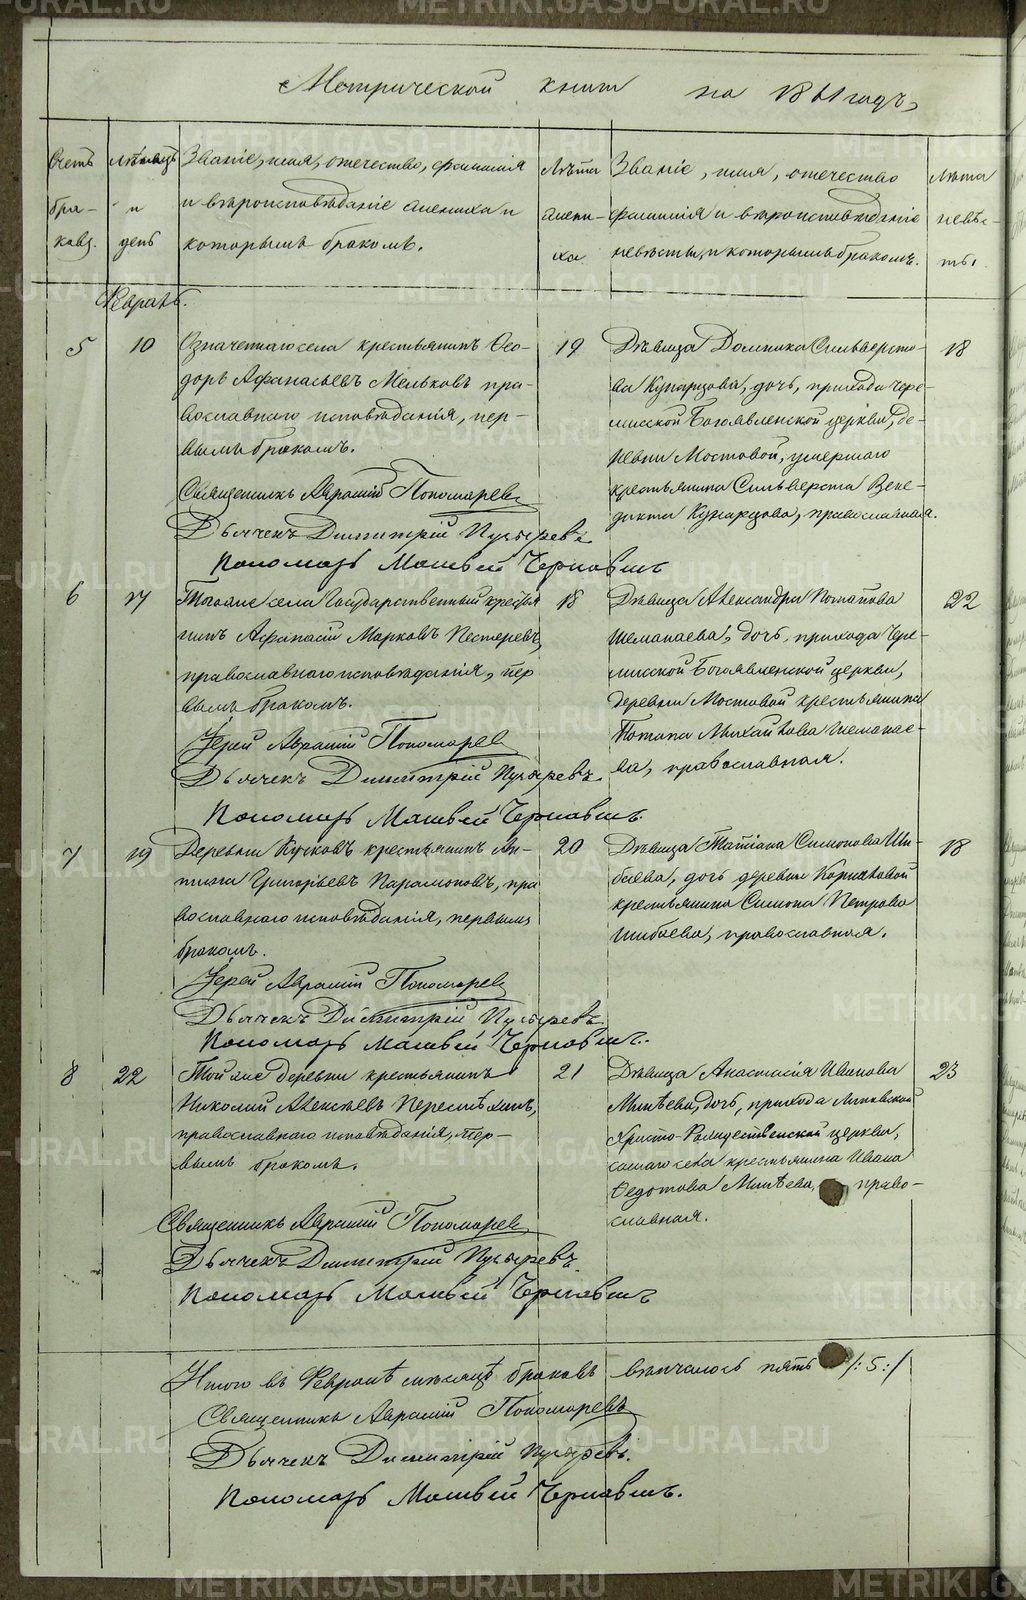 METRIKI.GASO-URAL.RU
Метрической книги на 1861 годъ,
Счетъ браковъ.
Мѣсяцъ и день
Званіе, имя, отечество, фамилія
и вѣроисповѣданіе жениха и
которымъ бракомъ.
Лѣта жениха.
Званіе, имя, отечество
фамилія и вѣроисповѣданіе
невѣсты, и которымъ бракомъ.
Лѣта невѣсты.
Февраль.
5
10
Означеннаго села крестьянинъ Ѳео-
доръ Афанасьевъ Мельковъ пра-
вославнаго исповѣданія, пер-
вымъ бракомъ.
Священникъ Аврамій Пономаревъ
Дьячекъ Димитрій Пузыревъ
Пономарь Матвей
19
Дѣвица Домника Сильверсто-
ва дочь, прихода Чере-
мисской Богоявленской церкви, де-
ревни Мостовой, умершаго
крестьянина Сильверста Вене-
дикта православная.
18
6
17
Тогоже села Государственный крестья
нинъ Афанасій Марковъ Пестеревъ,
православнаго исповѣданія, пер
вымъ бракомъ.
Іерей Аврамій Пономаревъ
Дьячекъ Димитрій Пузыревъ
Пономарь Матвей
18
Дѣвица Александра Потапова
Шеманаева, дочь, прихода Чере-
мисской Богоявленской церкви,
деревни Мостовой крестьянина
Потапа Михайлова Шеманае-
ва, православная.
22
7
19
Деревни крестьянинъ
Григорьевъ Парамоновъ, пра
вославнаго исповѣданія, первымъ
бракомъ.
Іерей Аврамій Пономаревъ
Дьячекъ Димитрій Пузыревъ
Пономарь Матвей
20
Дѣвица Татіана Симонова Ши-
баева, дочь деревни
крестьянина Симона Петрова
Шибаева, православная.
18
8
22
Той же деревни крестьянинъ
Николай Алексѣевъ
православнаго исповѣданія, пер-
вымъ бракомъ.
Священникъ Аврамій Пономаревъ
Дьячекъ Димитрій Пузыревъ
Пономарь Матвей
21
Дѣвица Анастасія Иванова
Минѣева, дочь, прихода Липовской
Христо-Рождественской церкви,
самаго села крестьянина Ивана
Ѳедотова Минѣева, право-
славная.
23
Итого въ Февралѣ мѣсяцѣ браковъ вѣнчалось пять /:5:/
Священникъ Аврамій Пономаревъ
Дьячекъ Димитрій Пузыревъ.
Пономарь Матвей